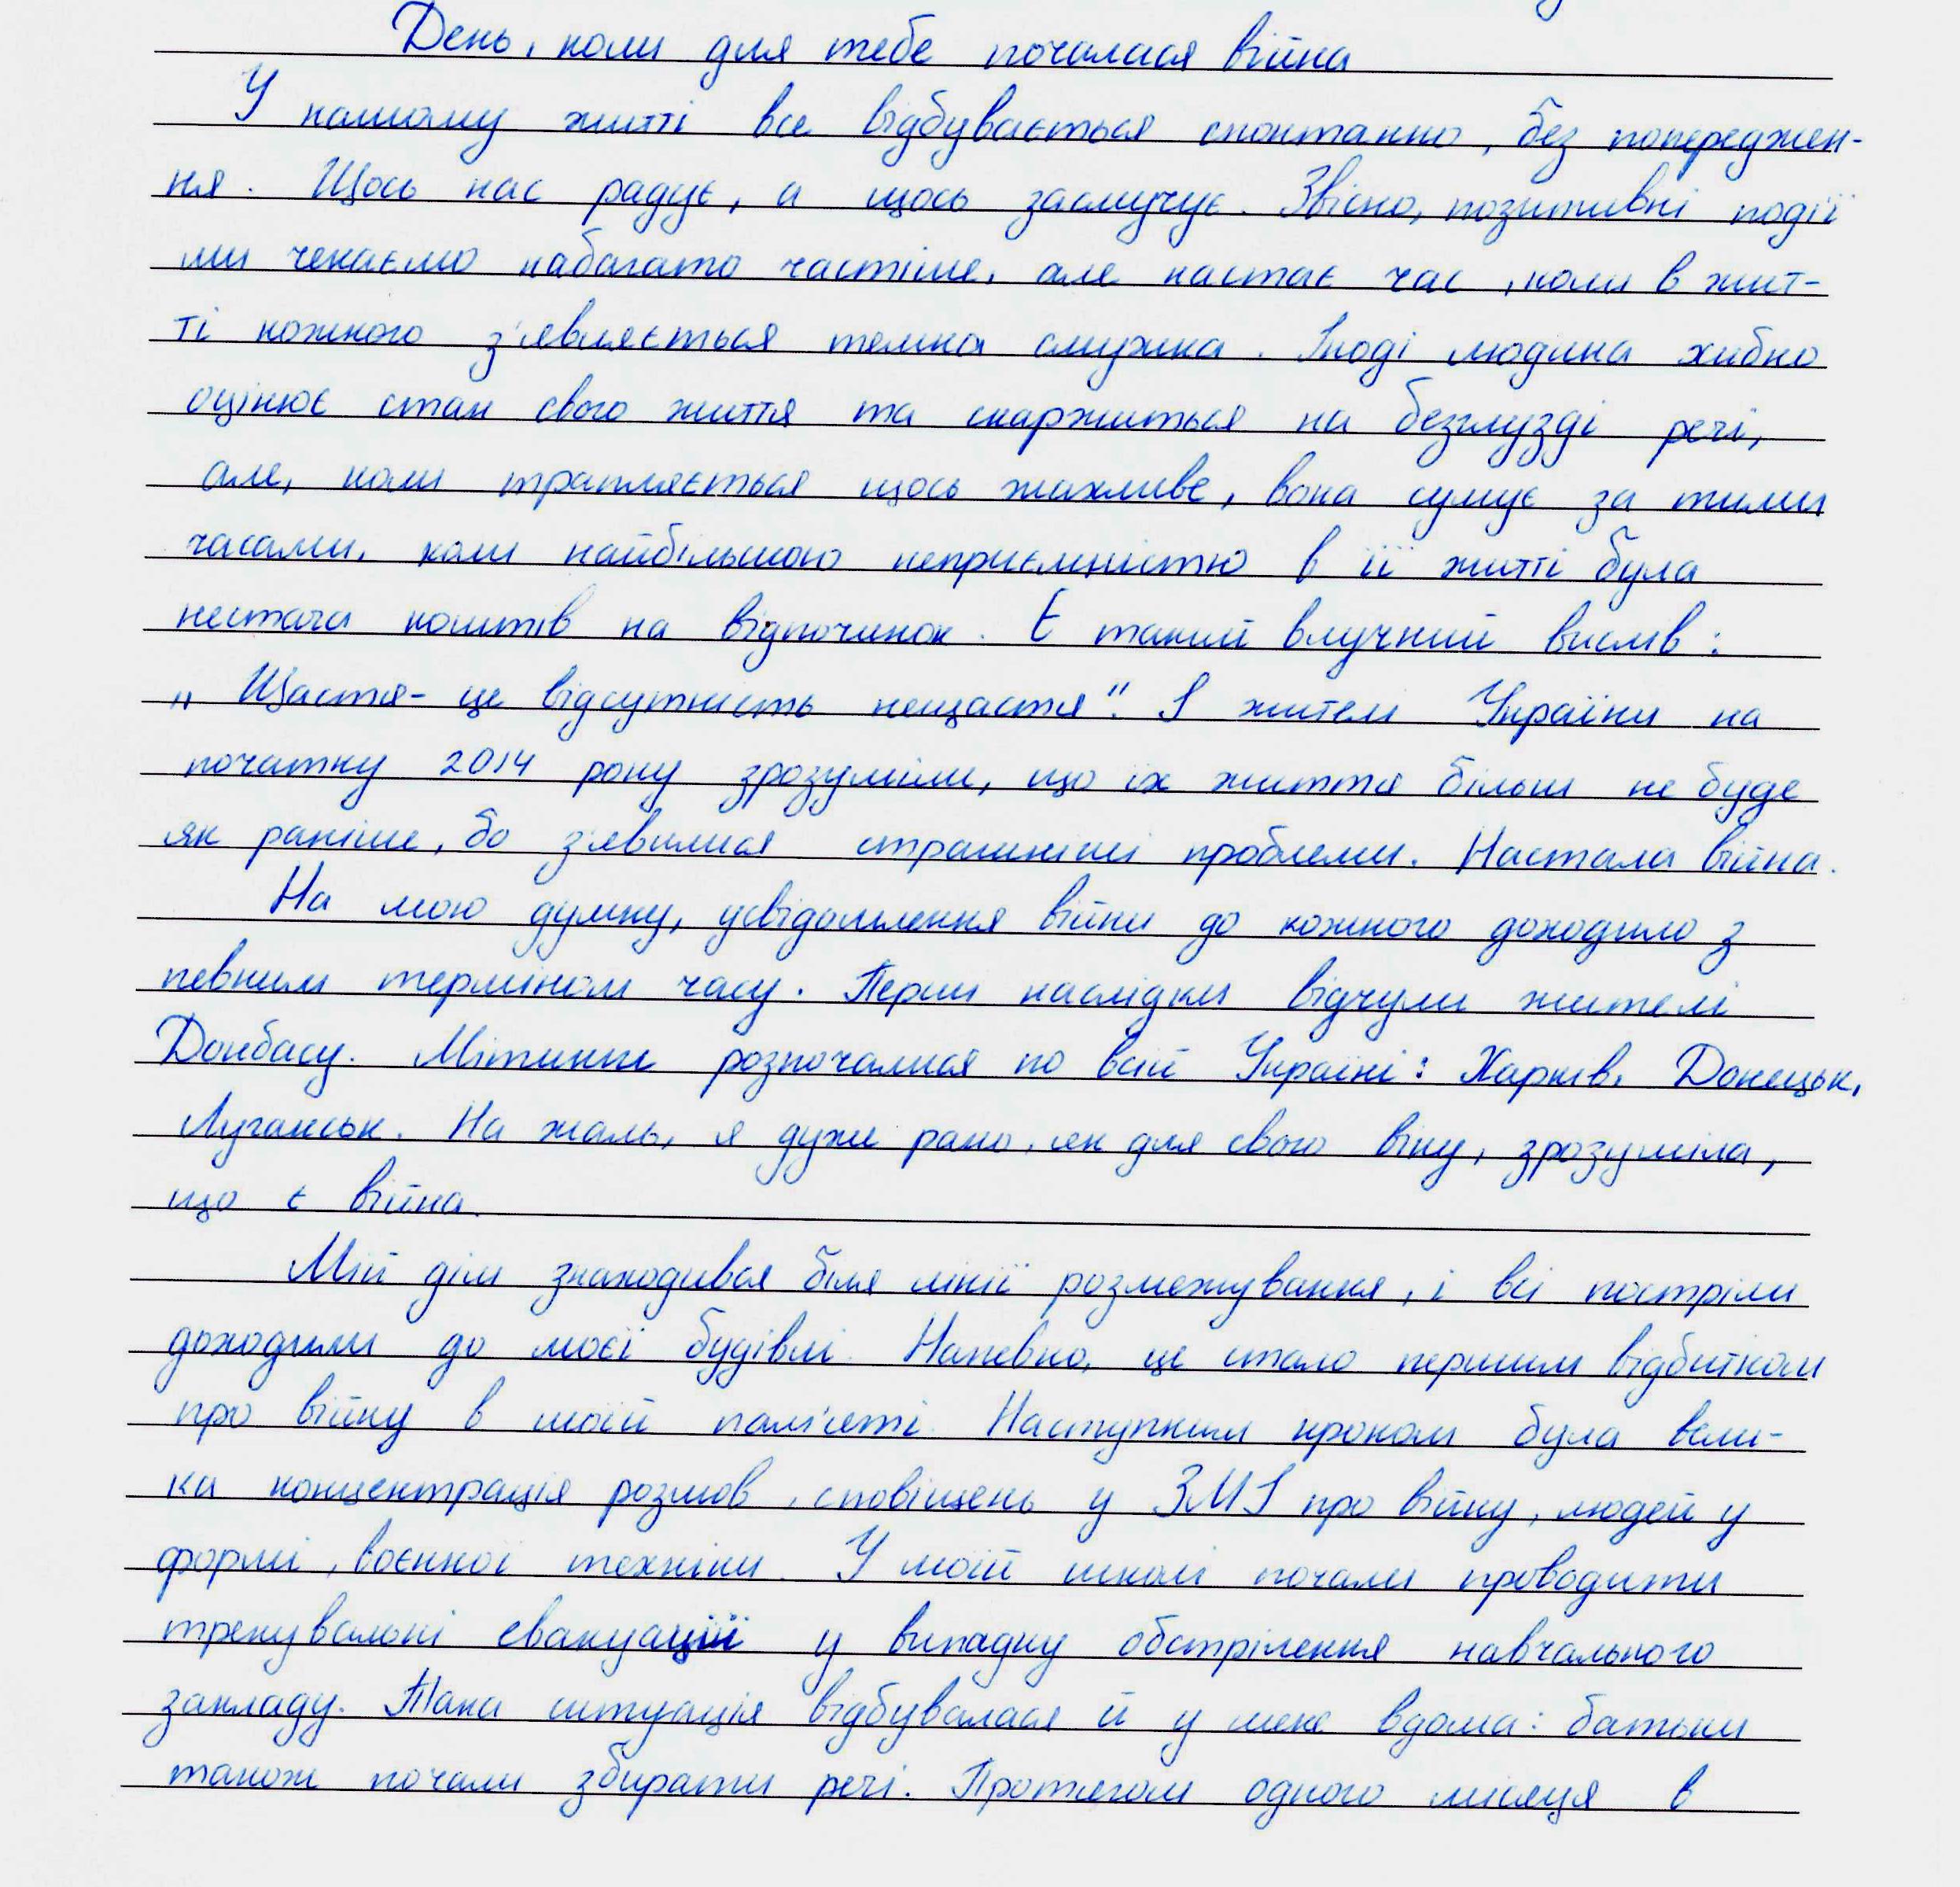 День, коли для тебе почалася війна
У нашому житті все відбувається спонтанно, без попереджен-
ня. Щось нас радує, а щось засмучує. Звісно, позитивні події
ми чекаємо набагато частіше, але настає час, коли в жит-
ті кожного з'являється темна смужка. Іноді людина хибно
оцінює стан свого життя та скаржиться на безглузді речі,
але, коли трапляється щось жахливе, вона сумує за тими
часами, коли найбільшою неприємністю в її житті була
нестача коштів на відпочинок. Є такий влучний вислів:
„Щастя- це відсутність нещастя". І жителі України на
початку 2014 року зрозуміли, що їх життя більш не буде
як раніше, бо з'явилися страшніші проблеми. Настала війна.
На мою думку, усвідомлення війни до кожного доходило з
певним терміном часу. Перші наслідки відчули жителі
Донбасу. Мітинги розпочалися по всій Україні: Харків, Донецьк,
Луганськ. На жаль, я дуже рано, як для свого віку, зрозуміла,
що є війна.
Мій дім знаходився біля лінії розмежування, і всі постріли
доходили до моєї будівлі. Напевно, це стало першим відбитком
про війну в моїй пам'яті. Наступним кроком була вели-
ка концентрація розмов, сповіщень у ЗМІ про війну, людей у
формі, воєнної техніки. У моїй школі почали проводити
тренувальні евакуації у випадку обстрілення навчального
закладу. Така ситуація відбувалася й у мене вдома: батьки
також почали збирати речі. Протягом одного місяця в